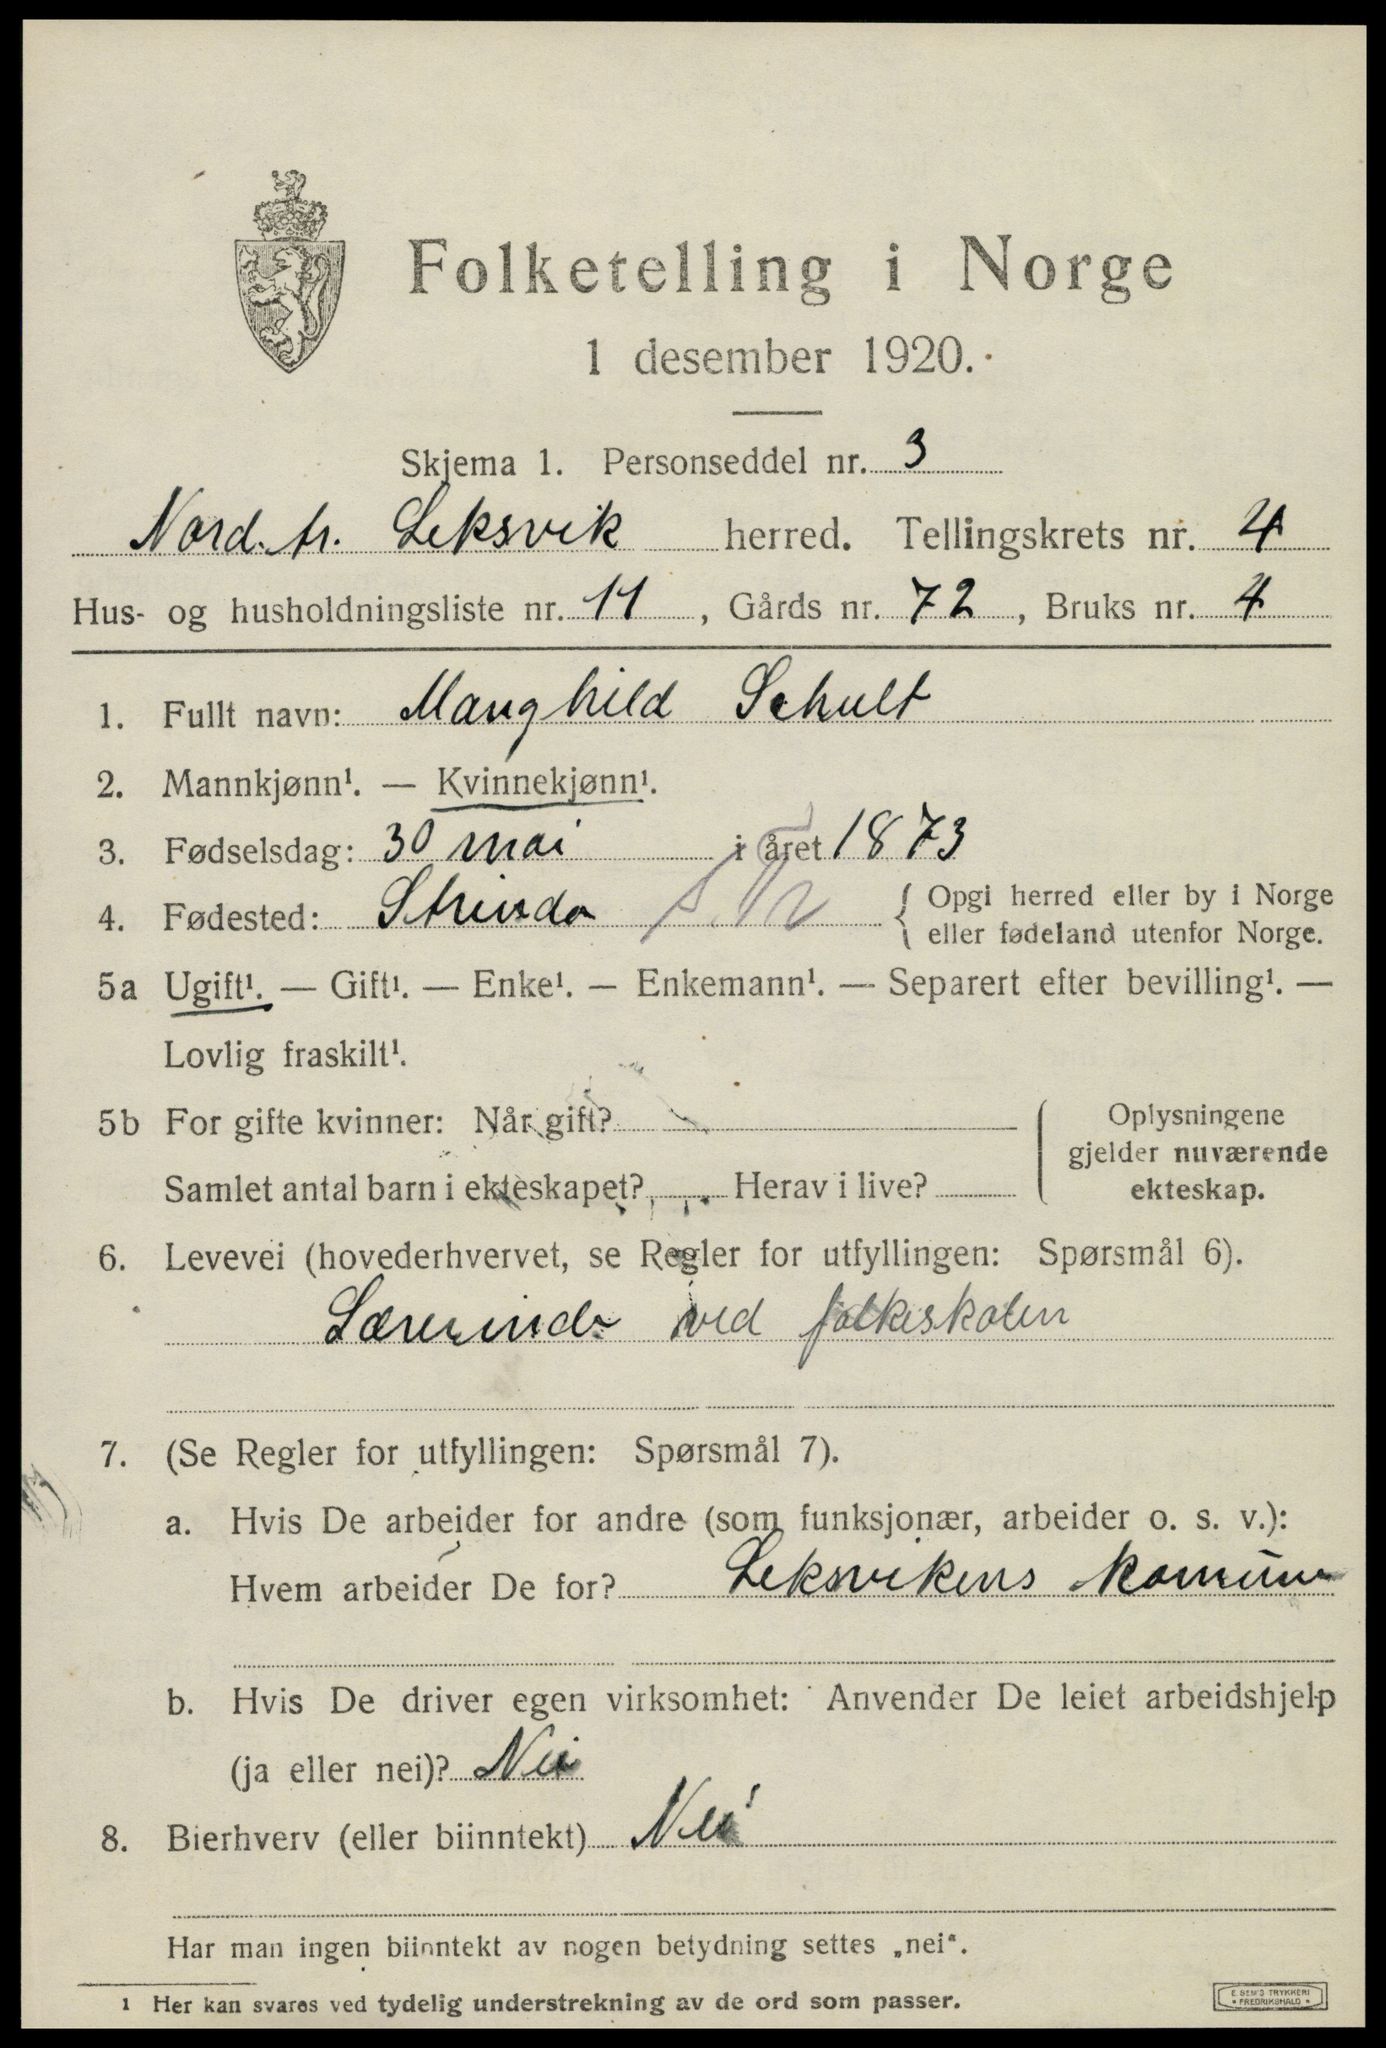 Folketelling i Norge
1 desember 1920.
Skjema 1. Personseddel nr. 3
Nord. tr. Leksvik herred. Tellingskrets nr. 4
Hus- og husholdningsliste nr. 11, Gårds nr. 72, Bruks nr. 4
1. Fullt navn: Maughild Schult
2. Mannkjønn¹. — Kvinnekjønn¹.
3. Fødselsdag: 30 mai i året 1873
4. Fødested: Strinda S. Tr { Opgi herred eller by i Norge
eller fødeland utenfor Norge.
5a Ugift¹. — Gift¹. — Enke¹. — Enkemann¹. — Separert efter bevilling¹. —
Lovlig fraskilt¹.
5b For gifte kvinner: Når gift?
Samlet antal barn i ekteskapet? Herav i live?
Oplysningene
gjelder nuværende
ekteskap.
6. Levevei (hovederhvervet, se Regler for utfyllingen: Spørsmål 6).
Lærerinde ved folkeskolen
7. (Se Regler for utfyllingen: Spørsmål 7).
a. Hvis De arbeider for andre (som funksjonær, arbeider o. s. v.):
Hvem arbeider De for? Leksvikens komune
b. Hvis De driver egen virksomhet: Anvender De leiet arbeidshjelp
(ja eller nei)? Nei
8. Bierhverv (eller biinntekt) Nei
Har man ingen biinntekt av nogen betydning settes „nei“.
1 Her kan svares ved tydelig understrekning av de ord som passer.
E. SEM'S TRYKKERI
* FREDRIKSHALD *